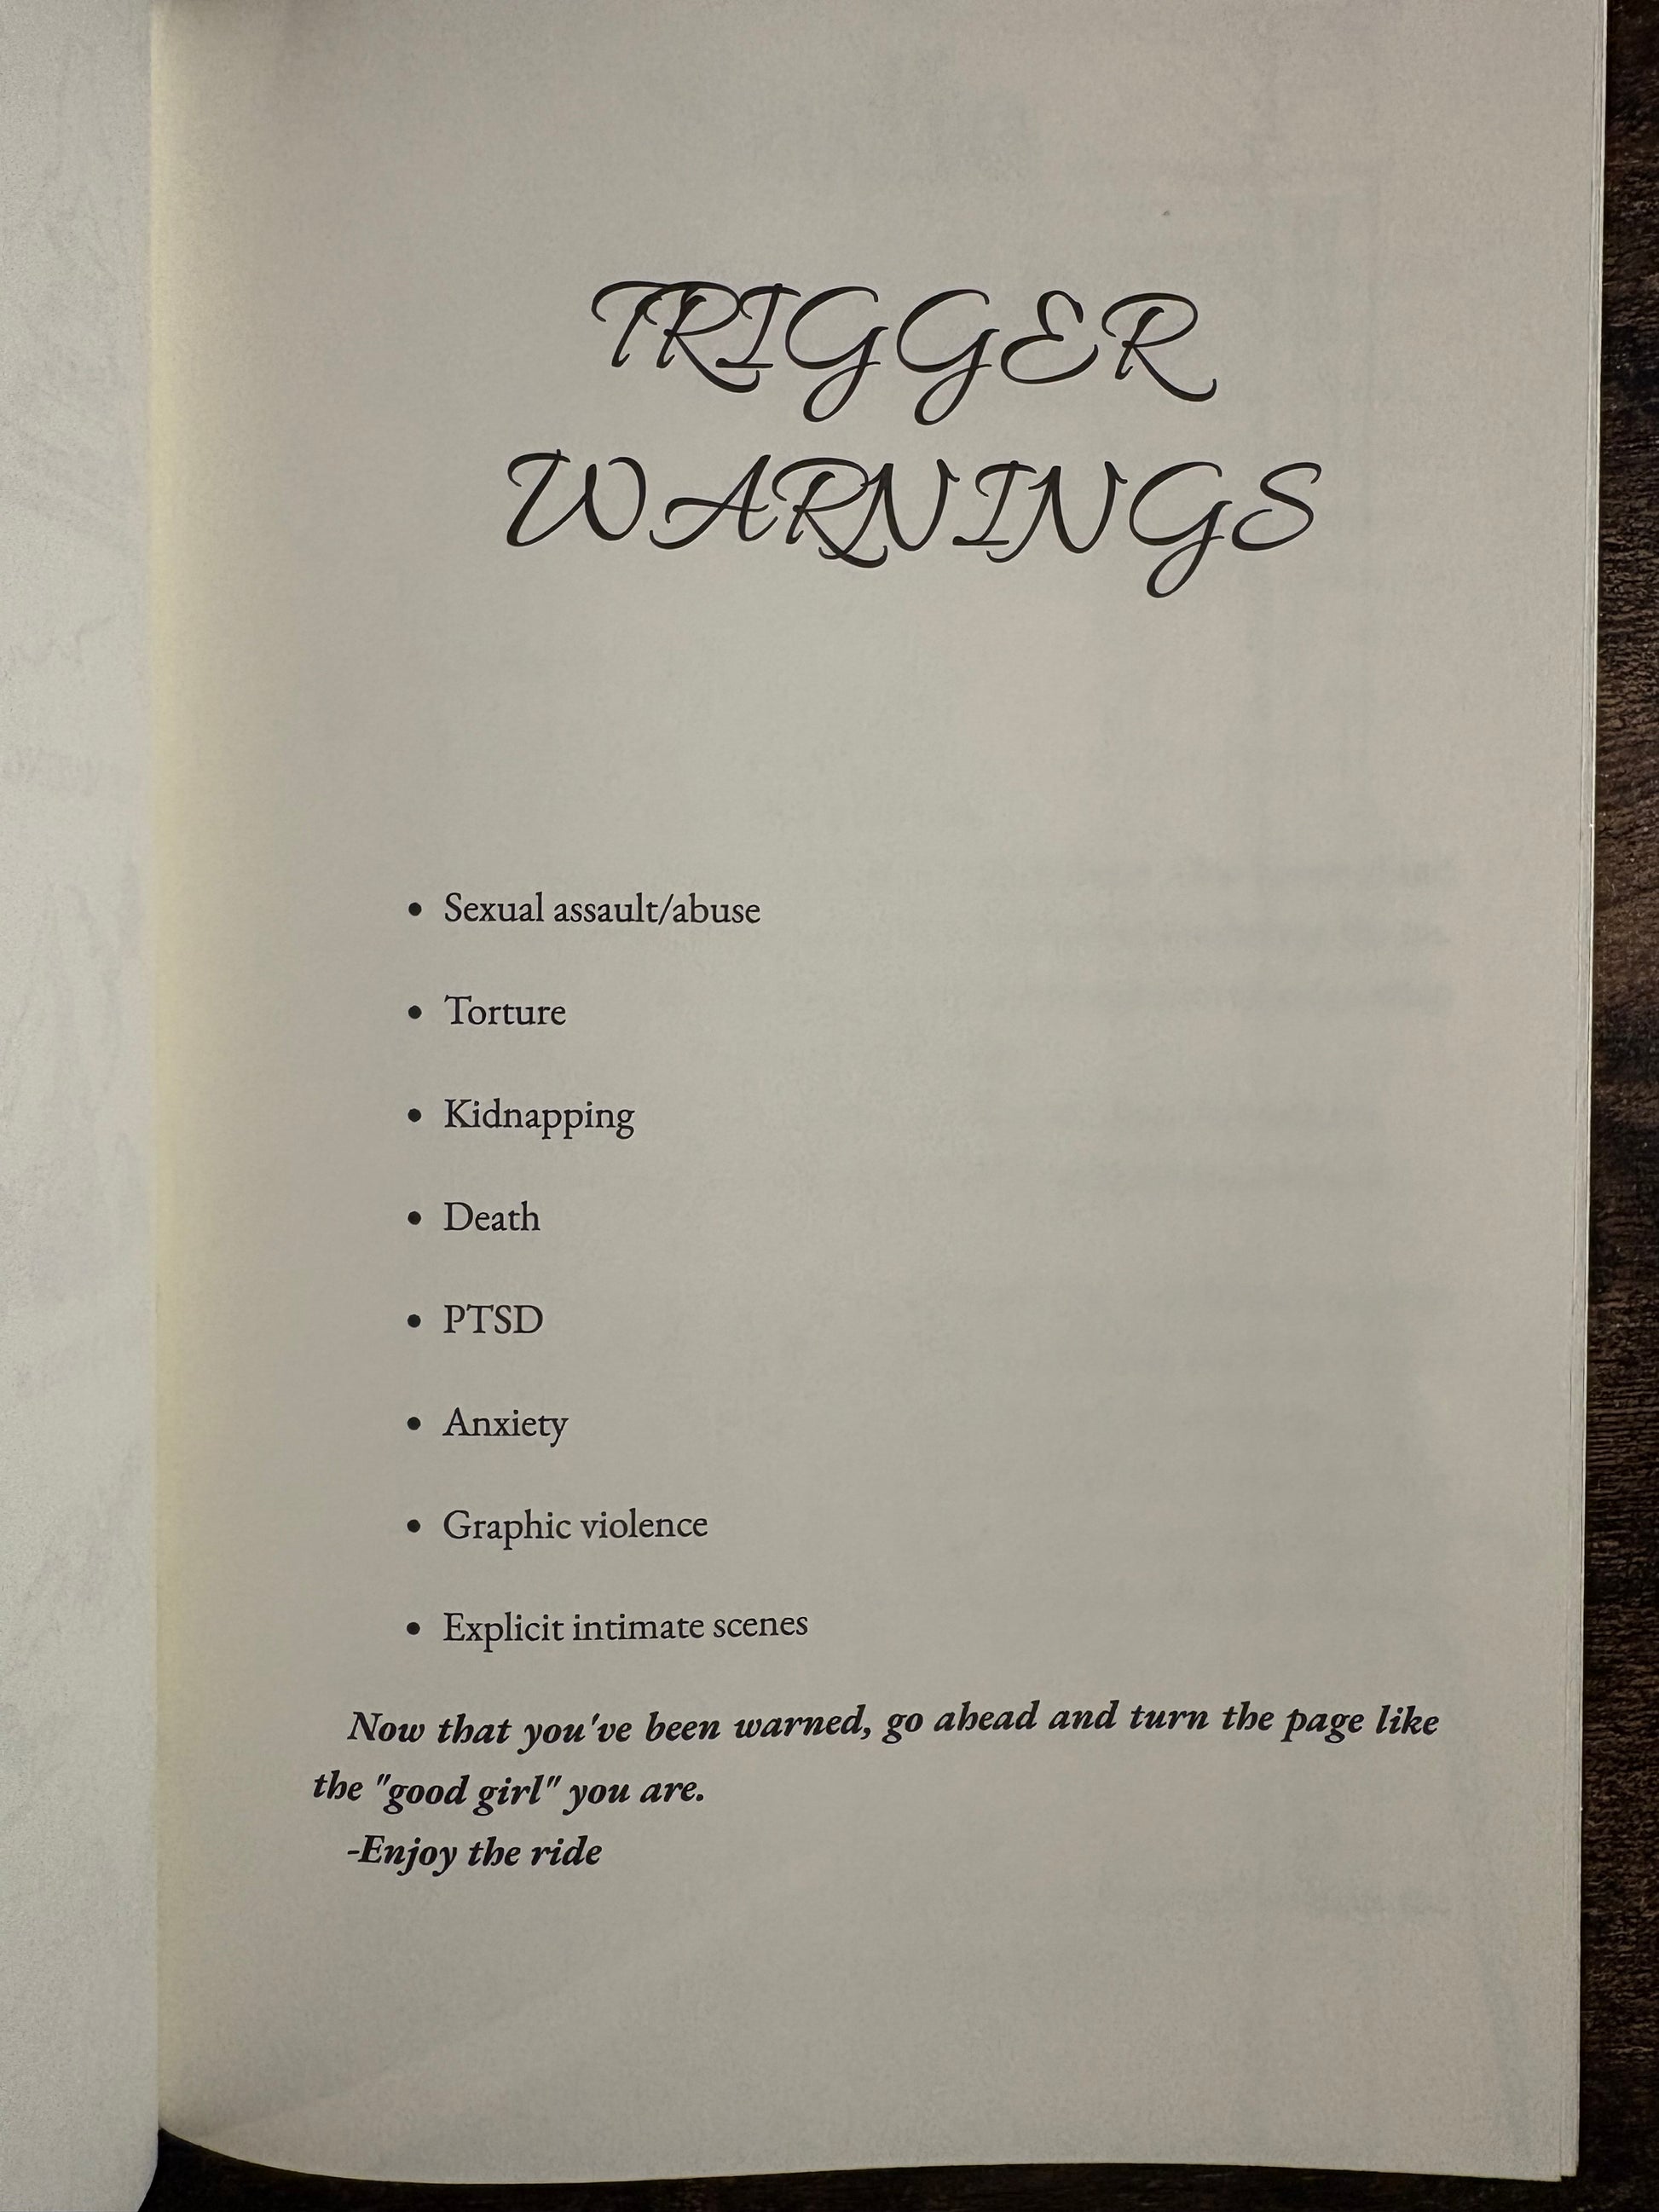 TRIGGER
WARNINGS
• Sexual assault/abuse
• Torture
• Kidnapping
• Death
• PTSD
• Anxiety
• Graphic violence
• Explicit intimate scenes
Now that you've been warned, go ahead and turn the page like
the "good girl" you are.
-Enjoy the ride